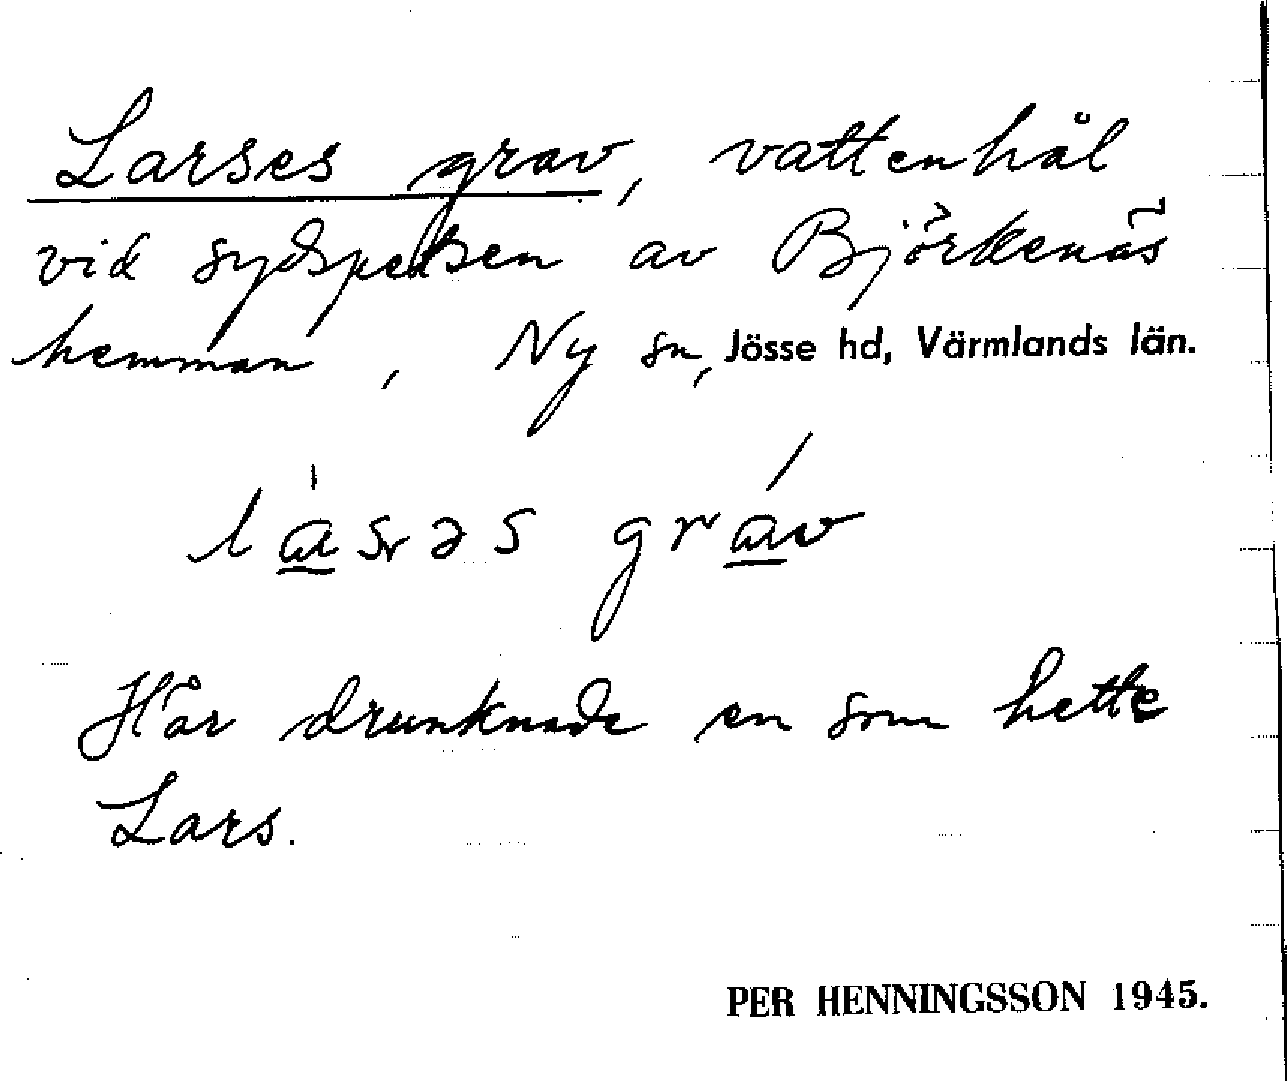 Larses grav, vattenhål
vid sydspetsen av Björkenäs
hemman, Ny sn, Jösse hd, Värmlands län.
lásəs gráv
Här drunknade en som hette
Lars.
PER HENNINGSSON 1945.